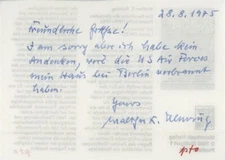 28.8.1975
Freundliche Grüße!
I am sorry aber ich habe kein
Andenken, weil die US Air Forces
mein Haus bei Berlin verbrannt
haben.
Yours
K.
pto